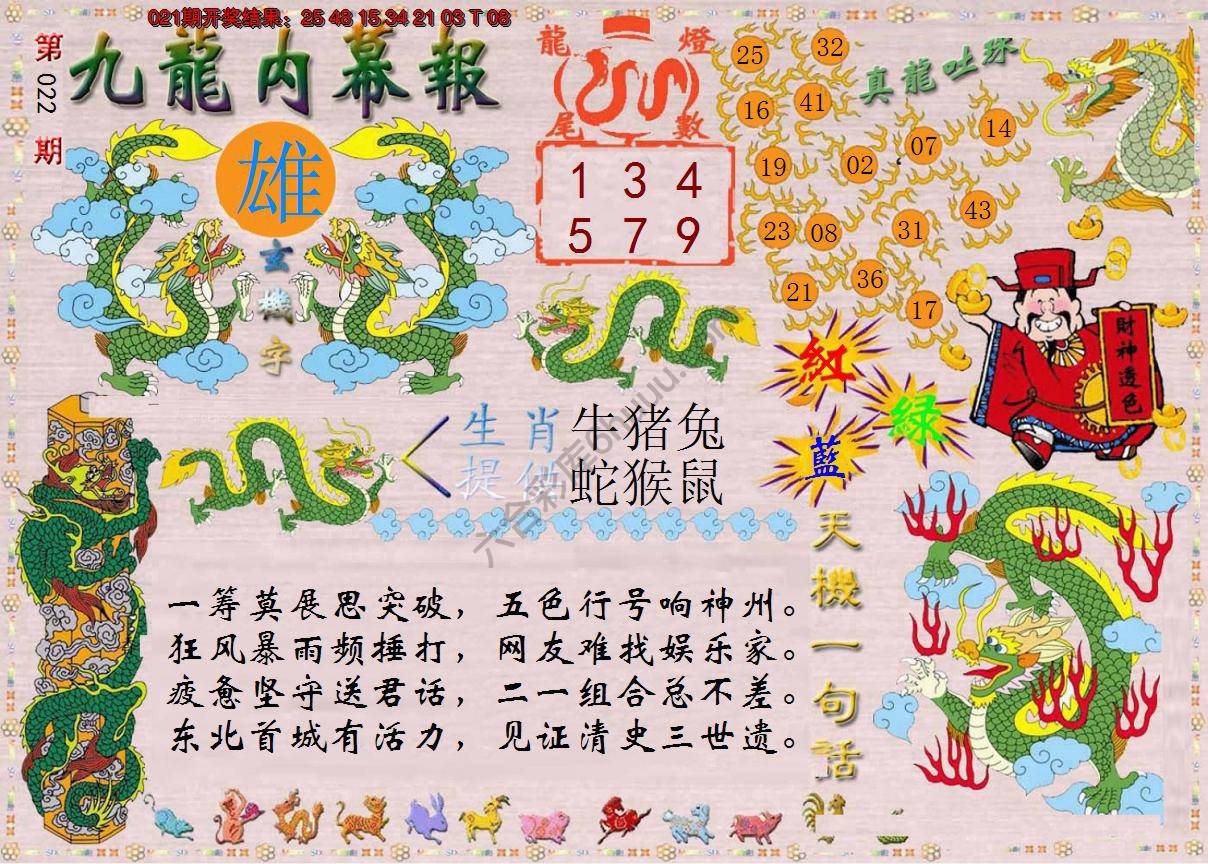 021期开奖结果：25 48 15.34 21 03 T 08
第
022
期
九龍内幕報
雄
玄
機
字
龍
燈
尾
數
1 3 4
5 7 9
真龍吐珠
25
32
16
41
19
02
07
14
23
08
31
43
21
36
17
財神透色
紅
綠
藍
生肖
提供
牛猪兔
蛇猴鼠
一筹莫展思突破，五色行号响神州。
狂风暴雨频捶打，网友难找娱乐家。
疲惫坚守送君话，二一组合总不差。
东北首城有活力，见证清史三世遗。
天機一句話